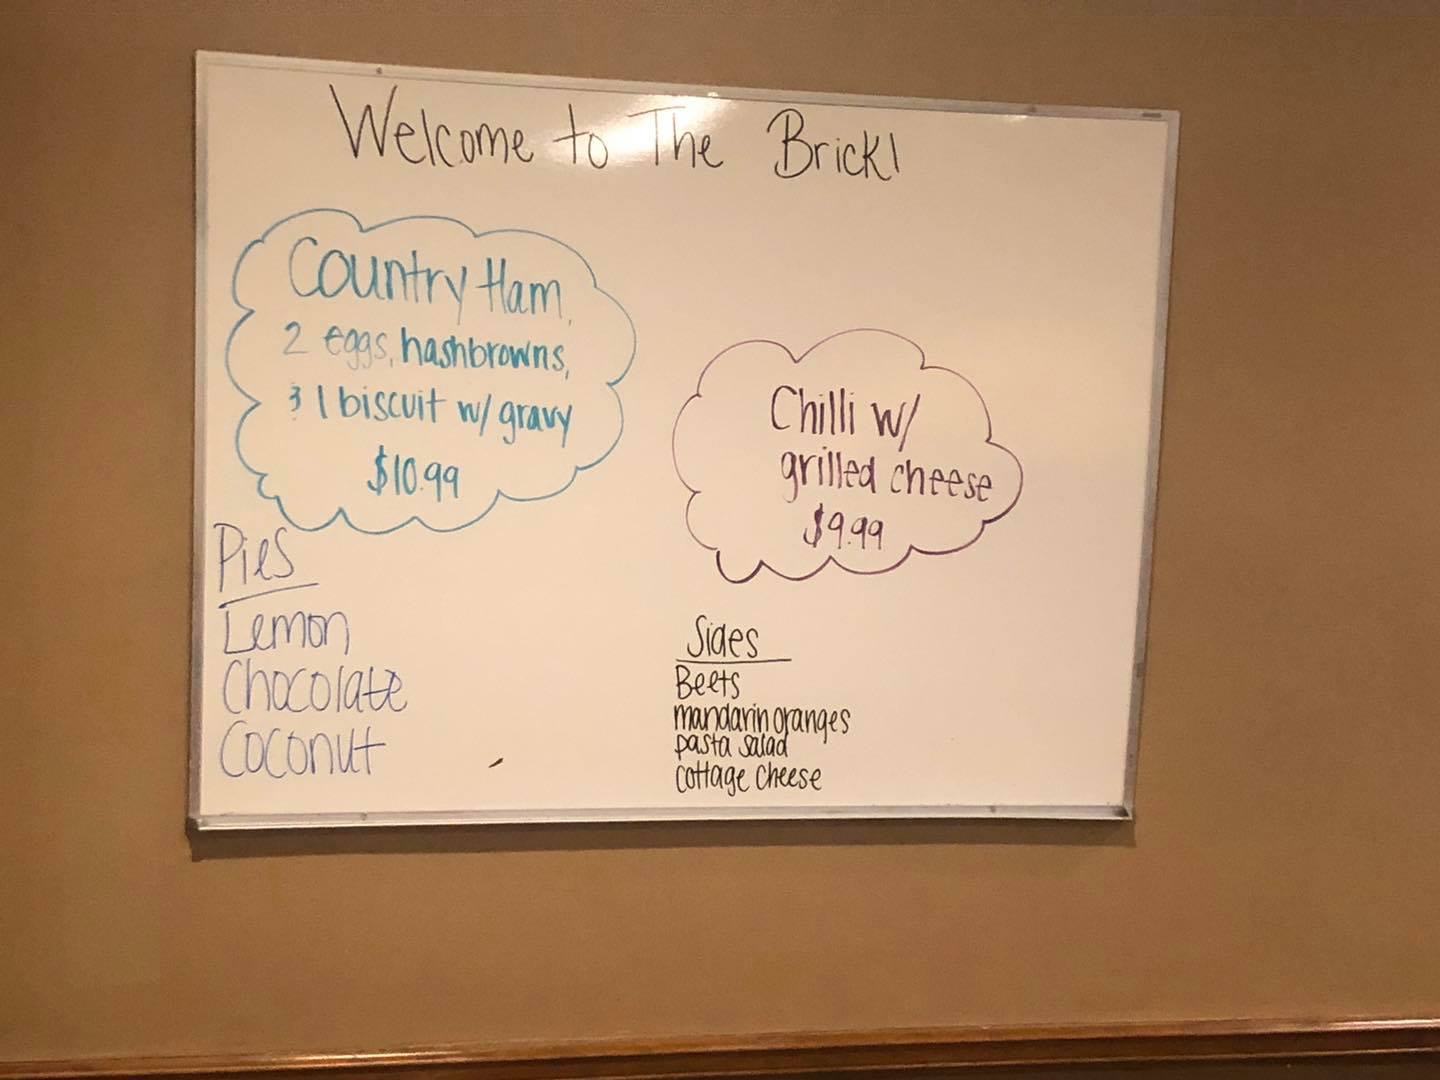 Welcome to The Brick!
Country Ham,
2 eggs, hashbrowns,
& 1 biscuit w/ gravy
$10.99
Chilli w/
grilled cheese
$9.99
Pies
Lemon
Chocolate
Coconut
Sides
Beets
mandarin oranges
pasta salad
cottage cheese